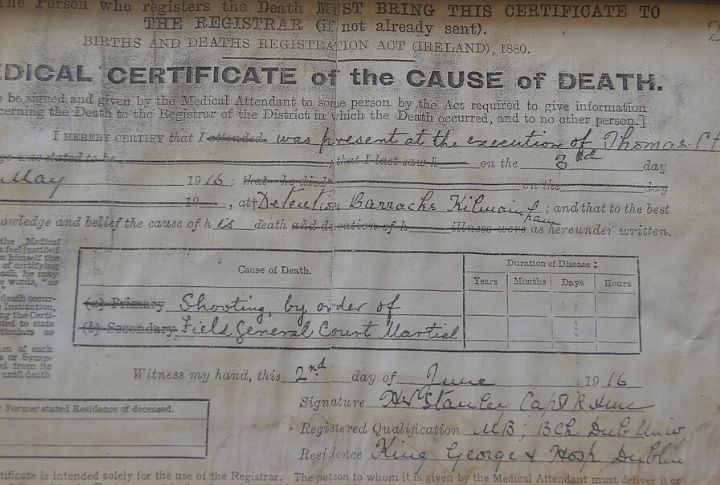 The Person who registers the Death MUST BRING THIS CERTIFICATE TO
THE REGISTRAR (if not already sent).
BIRTHS AND DEATHS REGISTRATION ACT (IRELAND), 1880.
EDICAL CERTIFICATE of the CAUSE of DEATH.
o be signed and given by the Medical Attendant to some person by the Act required to give information
cerning the Death to the Registrar of the District in which the Death occurred, and to no other person.]
I HEREBY CERTIFY that I attended was present at the execution of Thomas Cl
age was stated to be that I last saw h on the 3rd day
May 1916; that he died on the day
19 , at† Detention Barracks Kilmainham; and that to the best
owledge and belief the cause of his death and duration of h illness were as hereunder written.
the Medical
feel justified
n himself the
of certifying
eath, he may
e words, "as
death occur-
Institution,
ng the Certi-
ted to state
ticulars as
ion of each
or Symp-
ed from its
until death
Cause of Death.
Duration of Disease ‡
Years Months Days Hours
(a) Primary Shooting, by order of
(b) Secondary Field General Court Martial
Witness my hand, this 2nd day of June 1916
Signature H V Stanley Capt R A M C
Former stated Residence of deceased.
Registered Qualification MB; BCh Dub Univ
Residence King George V Hosp Dublin
rtificate is intended solely for the use of the Registrar. The person to whom it is given by the Medical Attendant must deliver it or